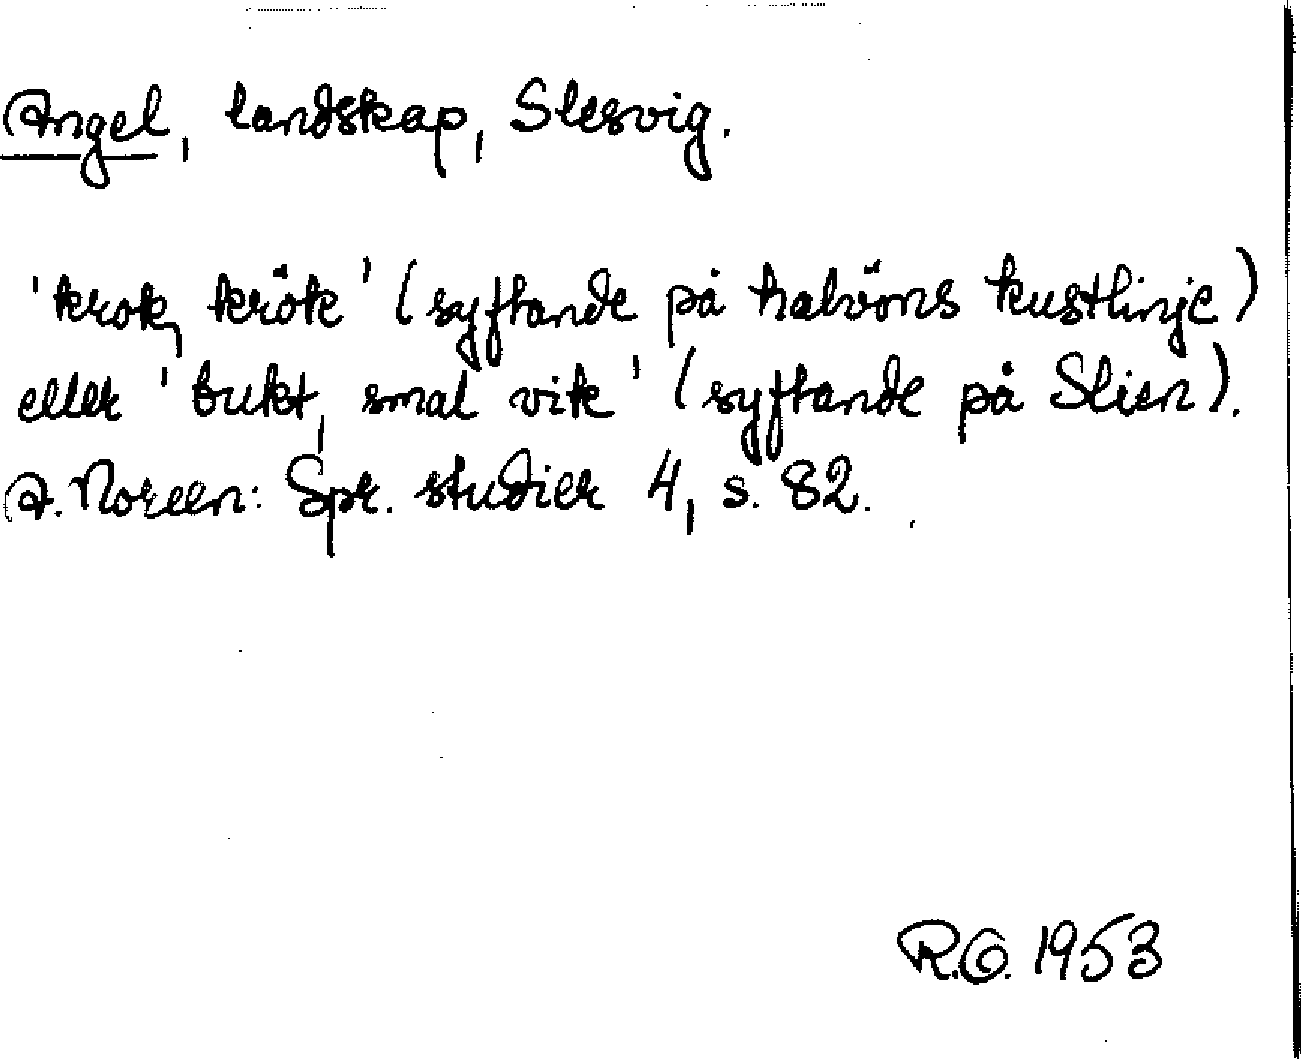 Angel, landskap, Slesvig.
'krok, krök' (syftande på halvöns kustlinje)
eller 'bukt, smal vik' (syftande på Slien).
A. Noreen: Spr. studier 4, s. 82.
R.O. 1953